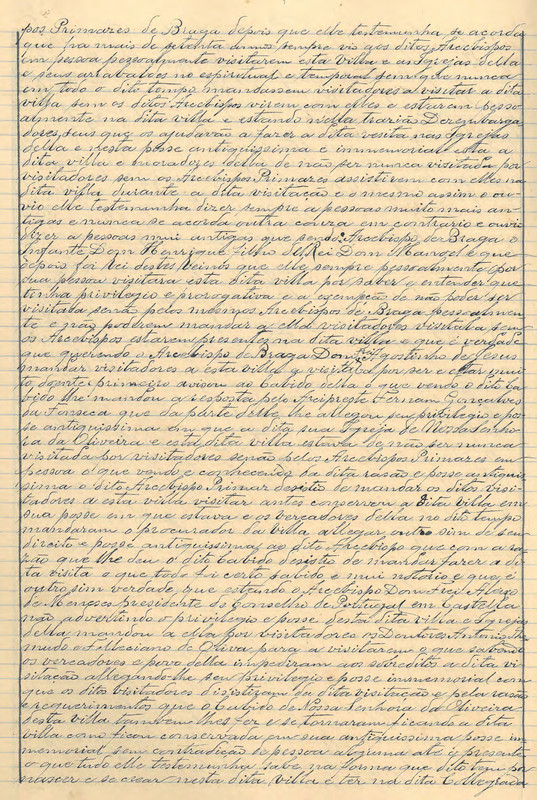 pos Primazes de Braga depois que elle testemunha se acorda
que fra mais de setenta annos sempre vis aos ditos Arcebispos
em pessoa pessoalmente visitarem esta villa e as Igrejas della
e seus arrabaldes no espiritual e temporal sem que nunca
em todo o dito tempo mandassem visitadores a visitar a dita
villa sem os ditos Arcebispos virem com elles e estarem pesso
almente na dita villa e estando nella trarião Dezembarga
dores seus que os ajudavão a fazer a dita vesita nas Igrejas
della e nesta posse antiquissima e immemorial está a
dita villa e moradores della de não ser nunca visitada por
visitadores sem os Arcebispos Primazes assistirem com elles na
dita villa durante a dita visitação e o mesmo assim o ou-
vio elle testemunha dizer sempre a pessoas muito mais an-
tigas e nunca se acorda outra couza em contrario e ouvio
dizer a pessoas mui antigas que sendo Arcebispo de Braga o
Infante Dom Henrique filho del Rei Dom Manoel e que
depois foi Rei destes Reinos que elle sempre pessoalmente por
sua pessoa visitara esta dita villa por saber e entender que
tinha privilegio e prerogativa e a exempção de não poder ser
visitada senão pelos mesmos Arcebispos de Braga pessoalmen-
te e não poderem mandar a ella visitadores visitala sem
os Arcebispos estarem presentes na dita villa e que é verdade
que querendo o Arcebispo de Braga Dom Frei Agostinho de Jesus
mandar visitadores a esta villa a visitala por ser e estar mui
to doente primeiro avisou ao Cabido della o que vendo o dito Ca-
bido lhe mandou a resposta pelo Arcipreste Fernam Gonçalves
da Fonseca que da parte delle lhe allegou seu privilegio e pos-
se antiquissima em que a dita sua Igreja de Nossa Senho
ra da Oliveira e esta dita villa estava de não ser nunca
visitada por visitadores senão pelos Arcebispos Primazes em
pessoa o que vendo e conhecendo da dita rasão e posse antiquis-
sima o dito Arcebispo Primaz desistio de mandar os ditos visi-
tadores a esta villa visitar antes conservou a dita villa em
sua posse em que estava e os vereadores della no dito tempo
mandaram o procurador da villa allegar outro sim de seu
direito e posse antiquissima ao dito Arcebispo que com a ra-
zão que lhe deu o dito Cabido desistio de mandar fazer a di-
ta visita o que todo foi certo sabido e mui notorio e que é
outro sim verdade que estando o Arcebispo Dom Frei Aleixo
de Meneses Presidente do Conselho de Portugal em Castella
não advertindo o privilegio e posse desta dita villa e Igrejas
della mandou a ella por visitadores os Doutores Antonio
e de Oliva para a visitarem e que sabendo
os vereadores e povo della impediram aos sobreditos a dita vi-
sitação allegando lhe seu privilegio e posse immemorial com
que os ditos Visitadores desistiram da dita visitação e pela rasão
e requerimentos que o Cabido de Nossa Senhora da Oliveira
desta villa tambem lhes fez e se tornaram ficando a dita
villa como ficou conservada em sua antiquissima posse im-
memorial sem contradição de pessoa alguma até o presente
o que tudo elle testemunha sabe na forma que dito tem por
nascer e se crear nesta dita villa e ter na dita Collegiada